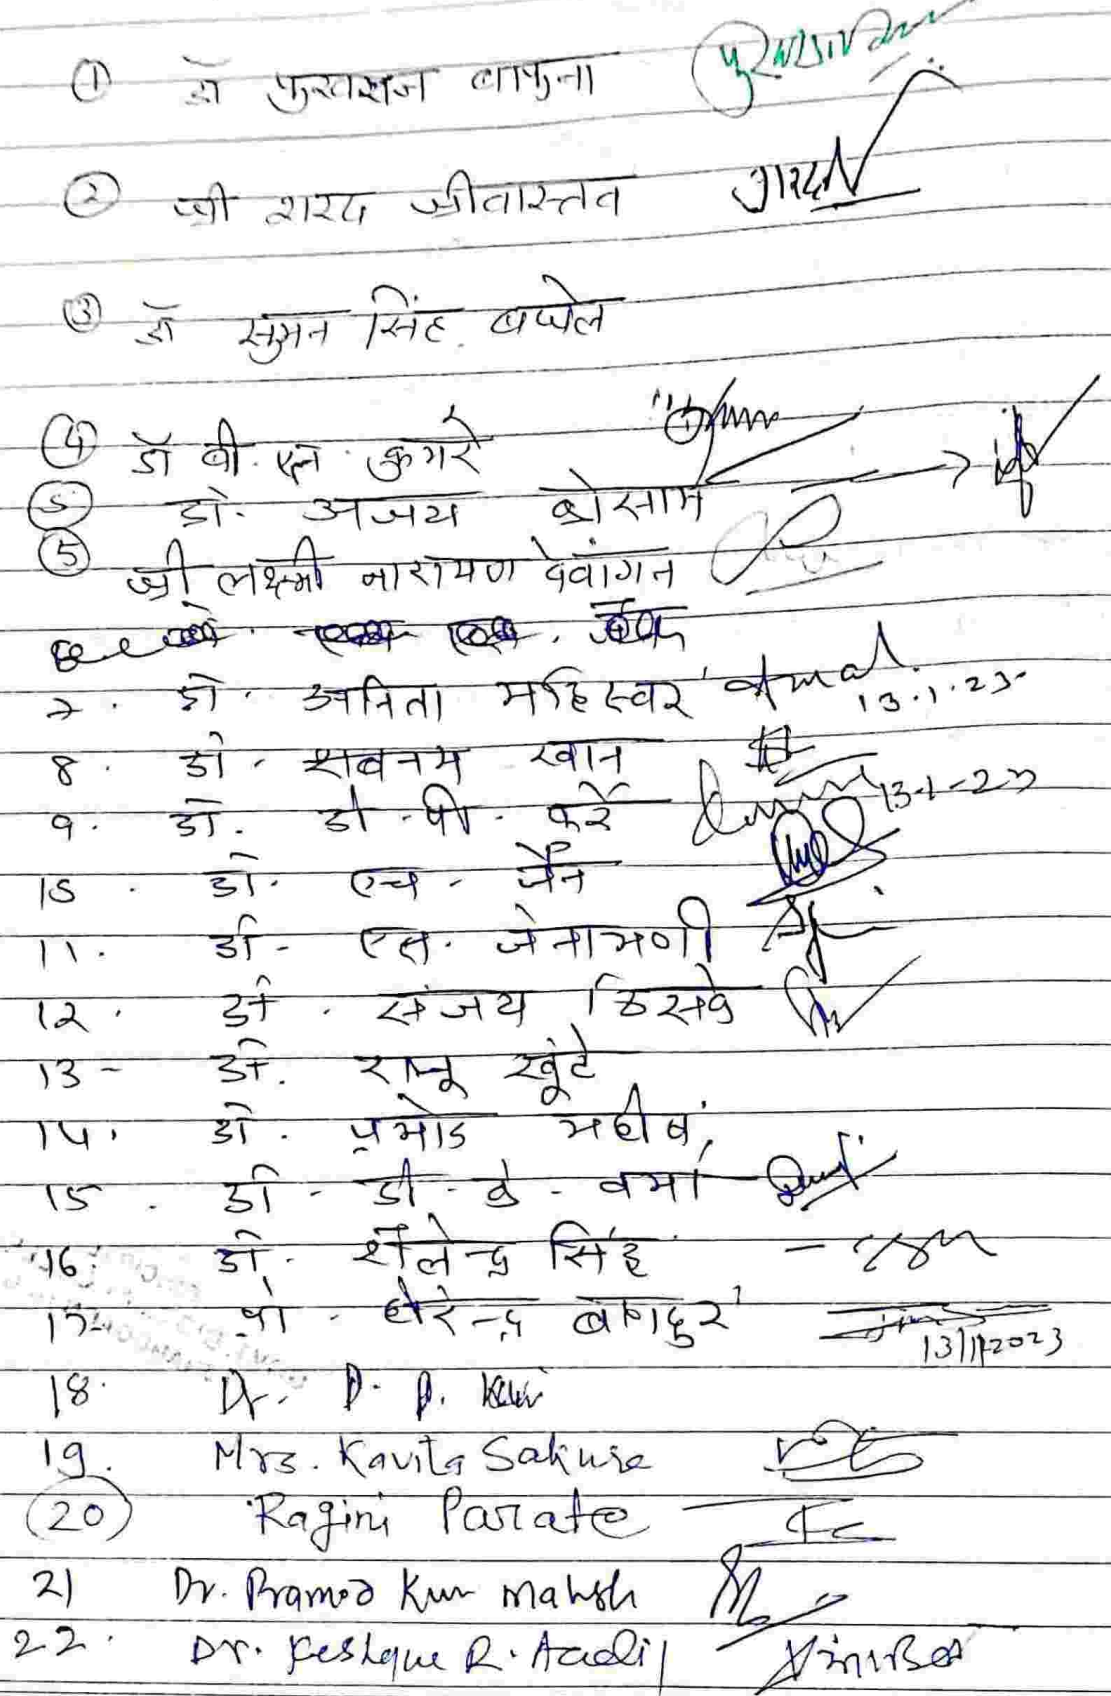 ① डॉ पुखराज बाफना
② श्री शरद श्रीवास्तव शरद
③ डॉ सुमन सिंह बघेल
④ डॉ बी. एल. कुमरे
5 डॉ. अजय कोसाम
⑤ श्री लक्ष्मी नारायण देवांगन
7. डॉ. अनिता महिस्वर 13.1.23
8. डॉ. शबनम खान
9. डॉ. डी. पी. कुर्रे 13-1-23
10. डॉ. एच. जैन
11. डॉ. एस. जेनामणी
12. डॉ. संजय ठिसके
13- डॉ. राजू खूंटे
14. डॉ. प्रमोद महीष
15. डॉ. डी. के. वर्मा
16. डॉ. शैलेन्द्र सिंह
17. प्रो. हीरेन्द्र बहादुर
13/1/2023
18. Dr. D. P.
19. Mrs. Kavita Sakure
(20) Ragini Parate
21 Dr. Pramod Kum Mahish
22. Dr. Keshav R. Aadil